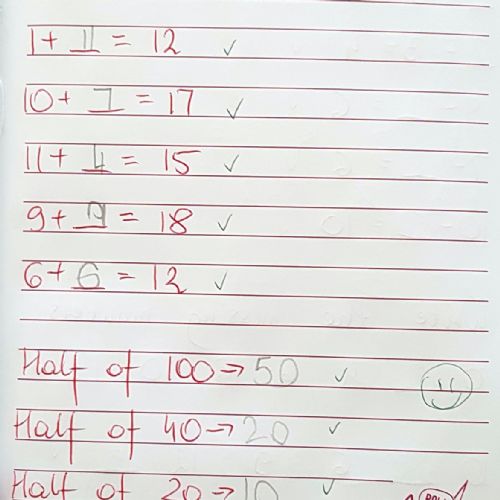 1 + 11 = 12
10 + 7 = 17
11 + 4 = 15
9 + 9 = 18
6 + 6 = 12
Half of 100 → 50
Half of 40 → 20
Half of 20 → 10